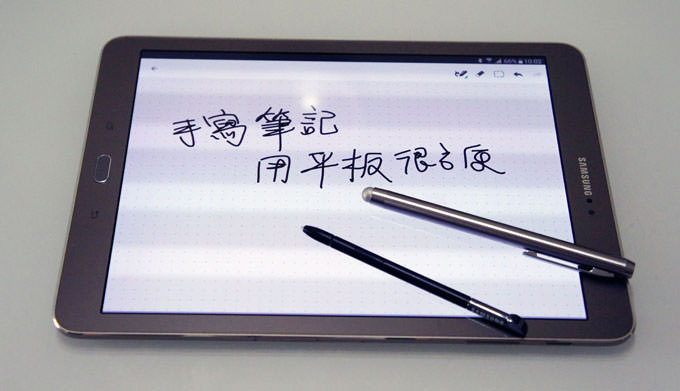 66% 10:02
手寫筆記
用平板很方便
SAMSUNG
SAMSUNG